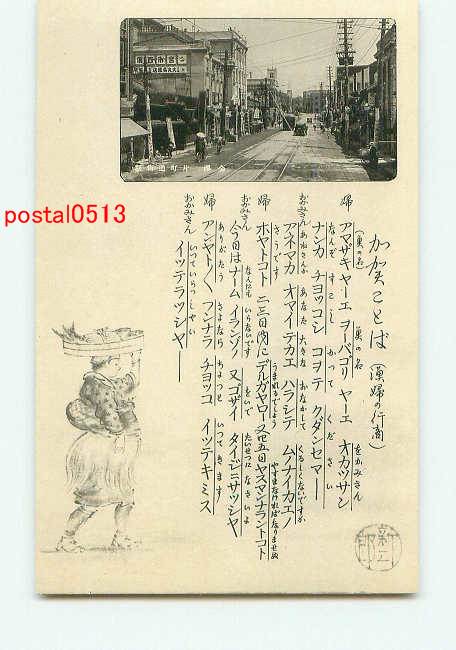 postal0513
加賀ことば（漁婦の行商）
婦 アマザキヤーエ ヲーバゴリ ヤーエ オカツサン
（魚の名） 魚の名 をかみさん
ナンカ チヨツコシ コヲテ クダンセマー
なんぞ すこし かつて ください
おかみさん アネマカ オマイデカエ ハラシテ ムノナイカエノ
あねさんか あなた 大きな おなかして くるしくないですか
婦 ホヤトコト 二三日内ニ デルガヤロー 又四五日ヤスマンナラントコト
さうです うまれるでしよう やすまなければなりませぬ
おかみさん 今日はナーム イランゾノ 又ゴザイ タイジニサツシヤ
なんにも いらないです おいで たいせつに なさいよ
婦 アンヤト／＼ フンナラ チヨツコ イツテキミス
ありがたう さよなら ちよつと いつてきます
おかみさん イツテラツシヤー
いつていらつしやい